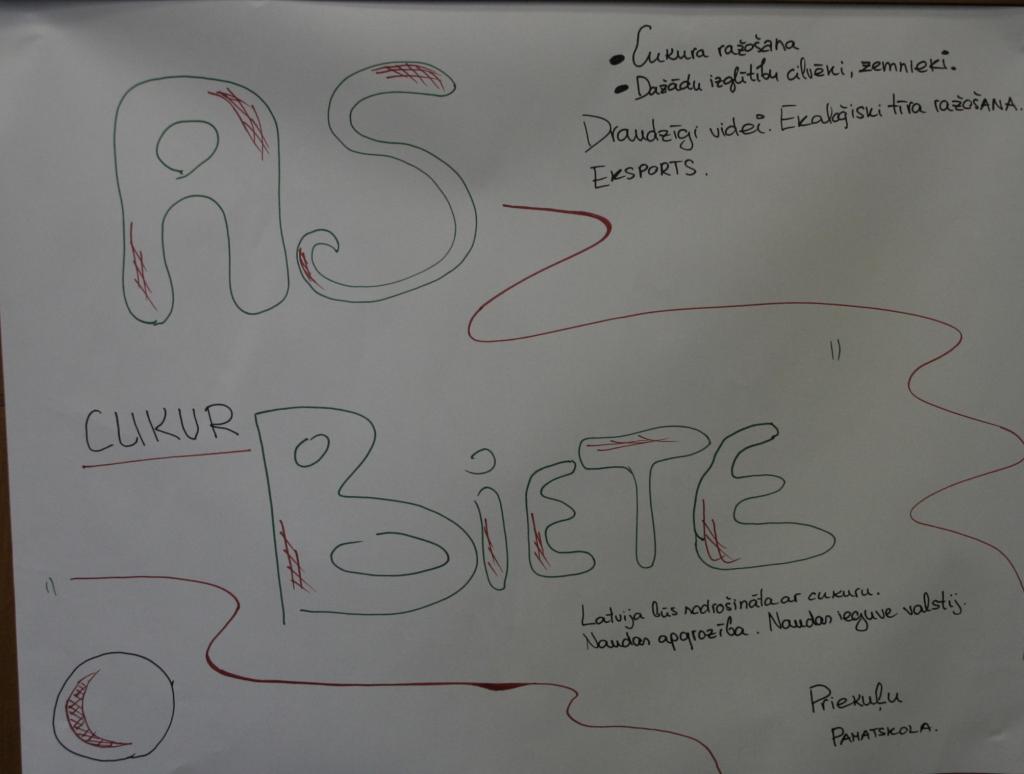 AS
• Cukura ražošana
• Dažādu izglītību cilvēki, zemnieki.
Draudzīgi videi. Ekaloģiski tīra ražošana.
EKSPORTS.
CUKUR
BiETE
Latvija būs nodrošināta ar cukuru.
Naudas apgrozība. Naudas ieguve valstij.
Priekuļu
PAMATSKOLA.